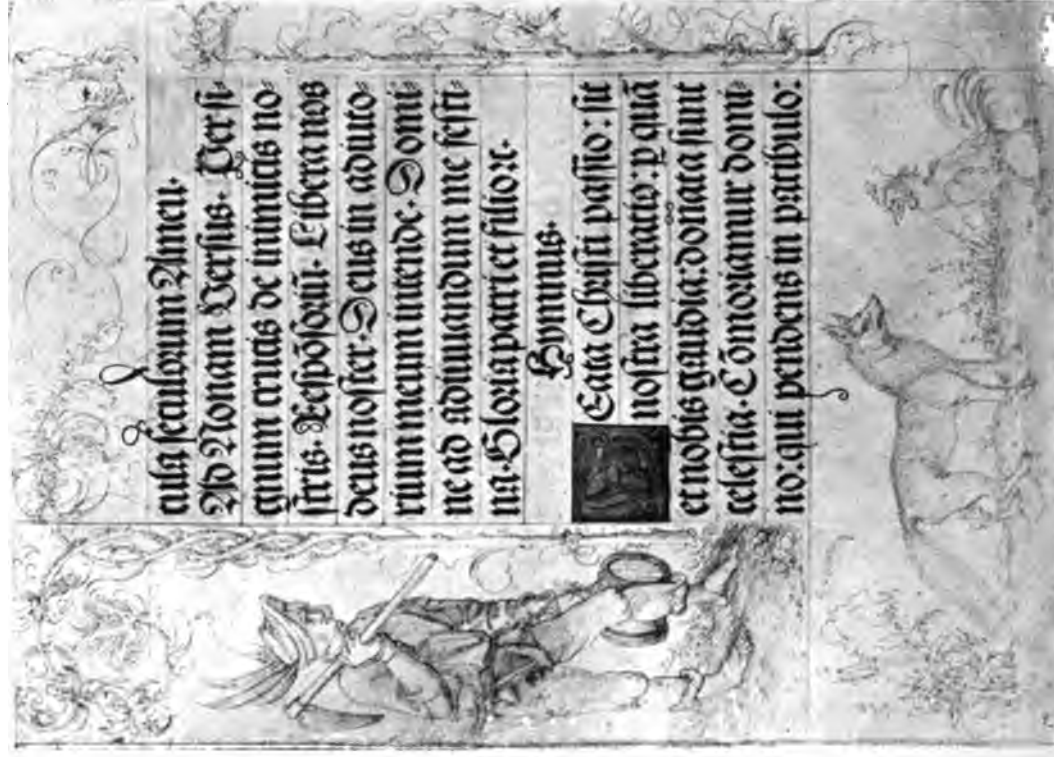 cula seculorum Amen.
Ad Nonam Versus. Per si⸗
gnum crucis de inimicis no⸗
stris. Respōsoriū. Libera nos
deus noster. Deus in adiuto⸗
rium meum intende. Domi⸗
ne ad adiuuandum me festi⸗
na. Gloria patri et filio ꝛc.
Hymnus.
BEata Christi passio: sit
nostra liberatio: p quā
et nobis gaudia: donata sunt
celestia. Cōmoriamur domi⸗
no: qui pendens in patibulo: